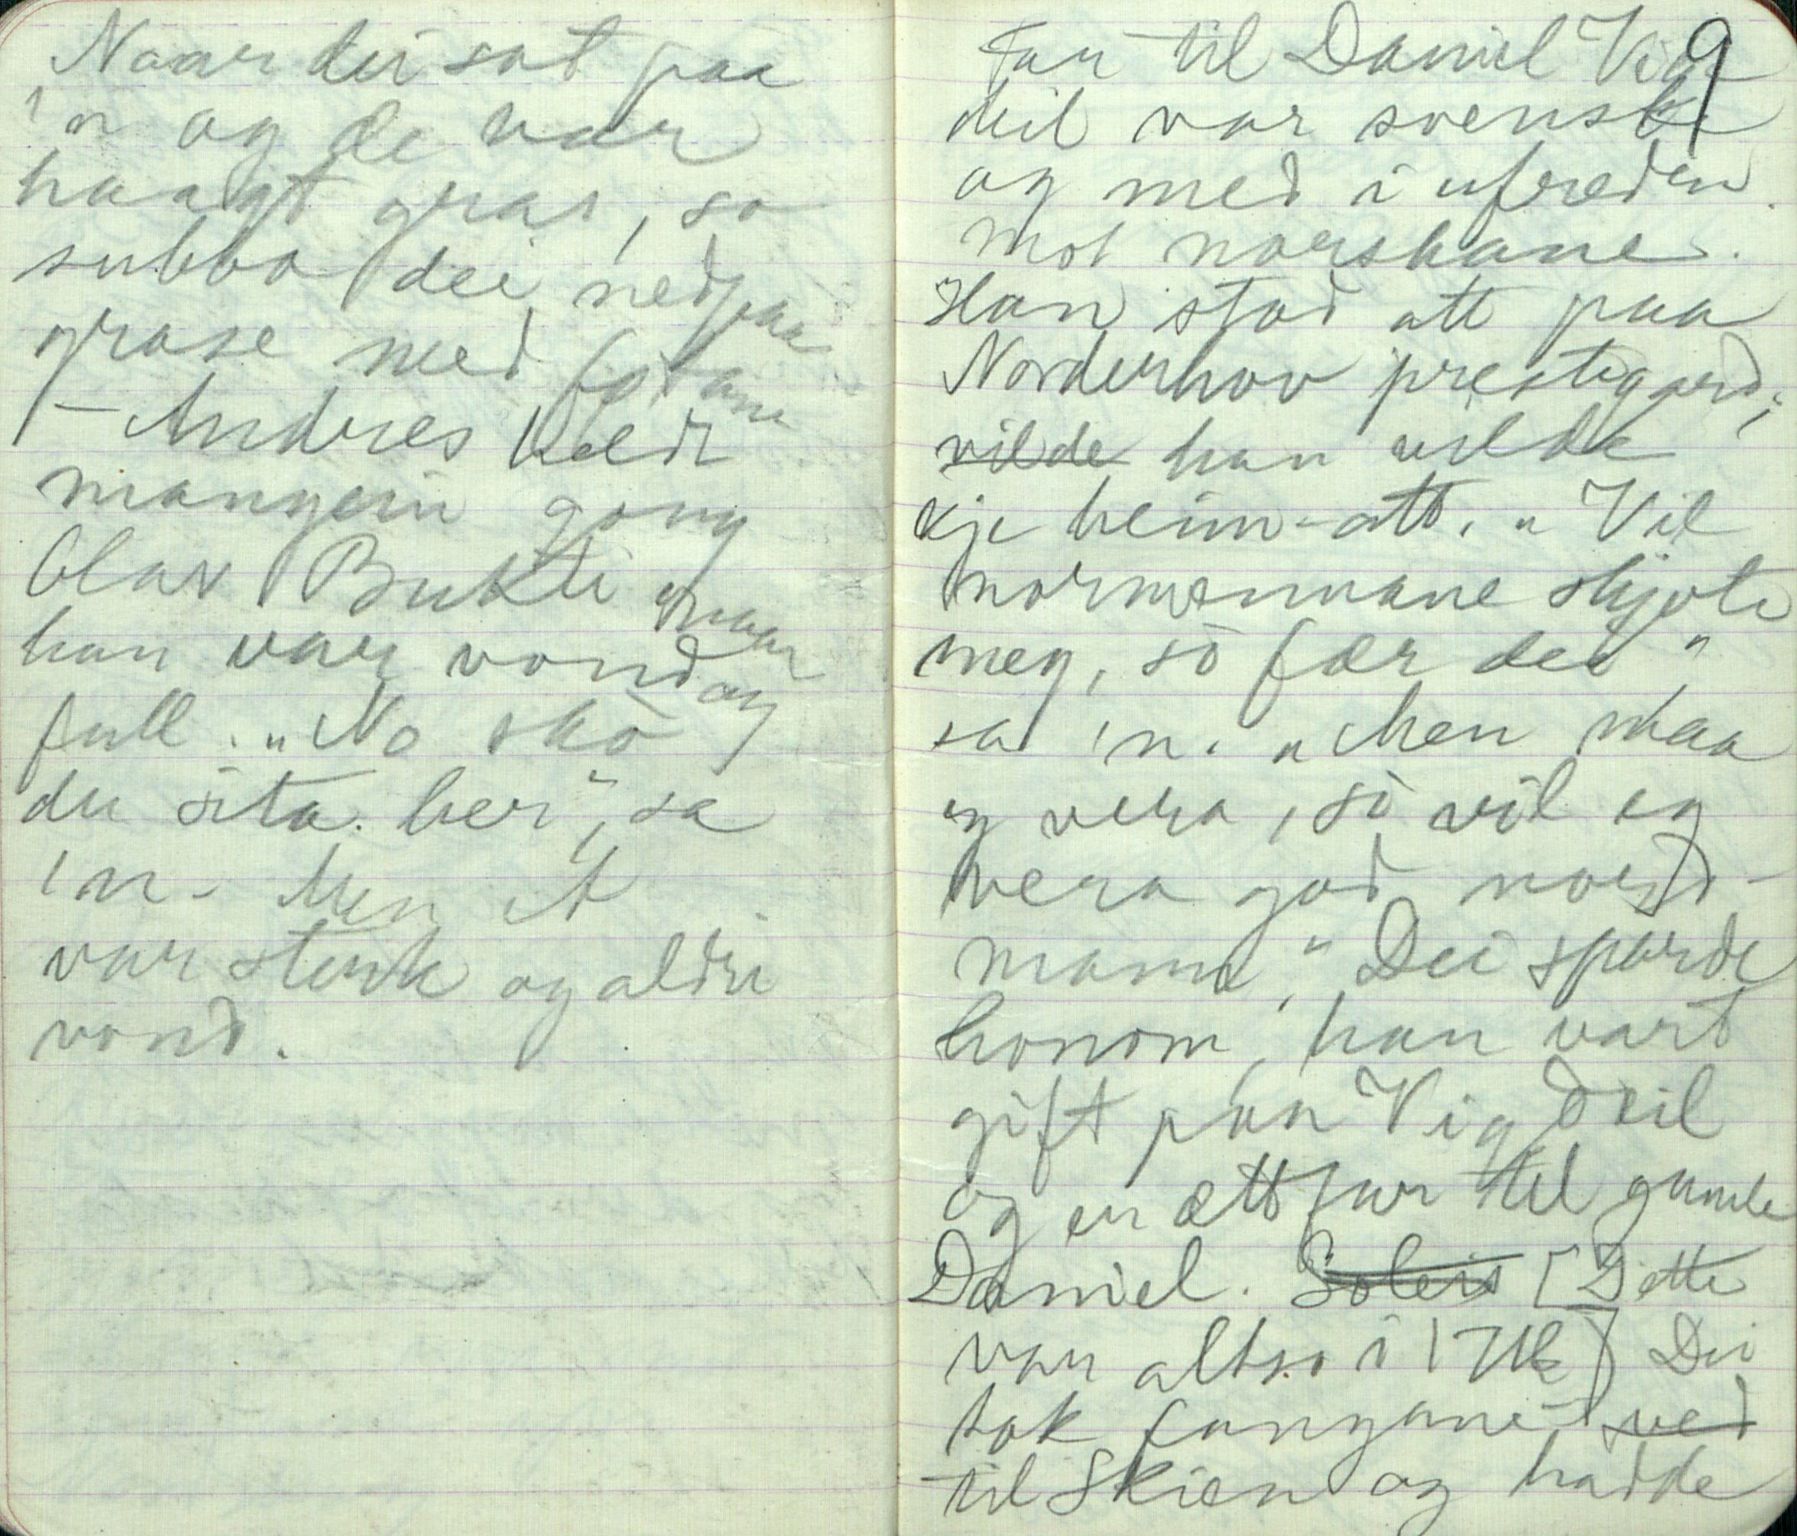 Naar dei sat paa
'n og de var
haagt gras, so
subba dei ned paa
grase med føtane
– Andres heldt
mangein gong
Olav Bukti naar
han var vond og
full. "No ska
du sita her", sa
'n. Men A
var sterk og aldri
vond.
9
Far til Daniel Vig
deil var svensk
og med i ufreden
mot norskane.
Han stod att paa
Norderhov prestegard;
vilde han vilde
kje heim-att. "Vil
normennane skjota
meg, so fær dei",
sa 'n. "Men maa
eg vera, so vil eg
vera god nord-
mann." Dei sparde
honom, han vart
gift paa Vigdeil
og er ættfar til gamle
Daniel. Soleis [Dette
var altso i 1716] Dei
tok fangane ved
til Skien og hadde